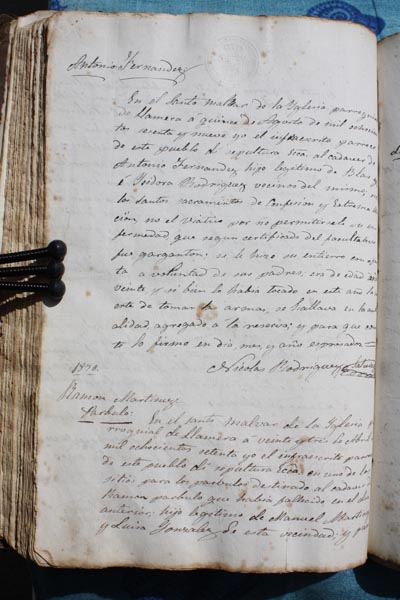 Antonio Fernandez
En el Santo malvar de la Yglesia parroquial
de Llamera á quince de Agosto de mil ochocien
tos secenta y nueve yo el infrascrito parroco
de este pueblo dí sepultura ecca. al cadaver de
Antonio Fernandez hijo legitimo de Blas
é Ysidora Rodriguez vecinos del mismo;
los santos sacramentos de Confesion y Extrema
cion, no el Viatico por no permitirselo su
fermedad que segun certificado del facultativo
fue garganton; se le hizo su entierro
á voluntad de sus padres. era de edad de
veinte y si bien le habia tocado en este año la
erte de tomar las armas, se hallava en la
alidad agregado á la reserva; y para que
te lo firmo en dia, mes, y año espresados
Nicolas Rodriguez
1870.
Ramon Martinez
Parbulo.
En el santo malvar de la Yglesia
rroquial de Llamera a veinte y tres de
mil ochocientos setenta yo el infrascrito parroco
de este pueblo dí sepultura Ecca. en uno de los
sitios para los parbulos destinado al cadaver
Ramon parbulo que habia fallecido en el dia
anterior; hijo legitimo de Manuel Martinez
y Luisa Gonzalez de esta vecindad; y